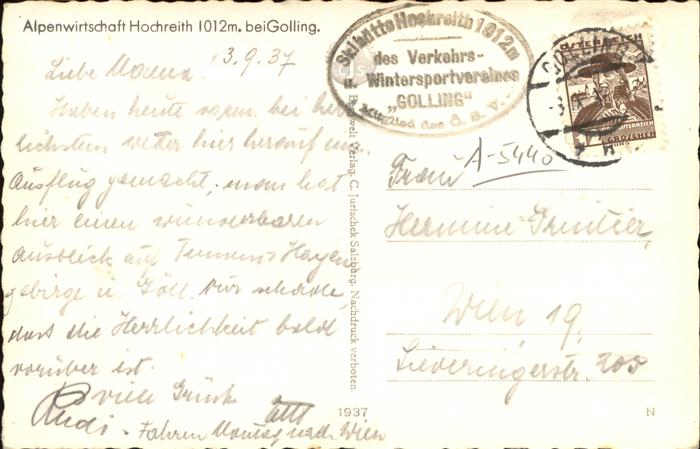 Alpenwirtschaft Hochreith 1012m. bei Golling.
3.9.37
Liebe Mama!
Haben heute sogar bei herr
lichstem wetter hier herauf ein
Ausflug gemacht, man hat
hier einen wunderbaren
ausblick auf Tennen- Hagen
gebirge u Göll. Nur schade,
dass die Herrlichkeit bald
vorüber ist.
viele Grüsse
Rudi
Fahren Montag nach Wien
Skihütte Hochreith 1012m
des Verkehrs-
u. Wintersportvereines
"GOLLING"
Mitglied des Ö. S. V.
Verlag C. Jurischek Salzburg. Nachdruck verboten.
1937
N
ÖSTERREICH
GROSCHEN
A-5440
Frau
Hermine
Wien 19.
Sieveringerstr. 205